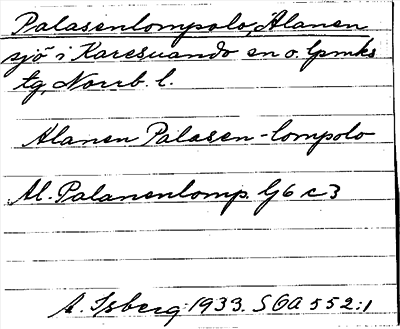 Palasenlompolo, Alanen
sjö i Karesuando en o. lpmks
tg, Norrb. l.
Alanen Palasen-lompolo
Al. Palanenlomp. lj 6 c 3
A. Isberg: 1933. SOA 552:1